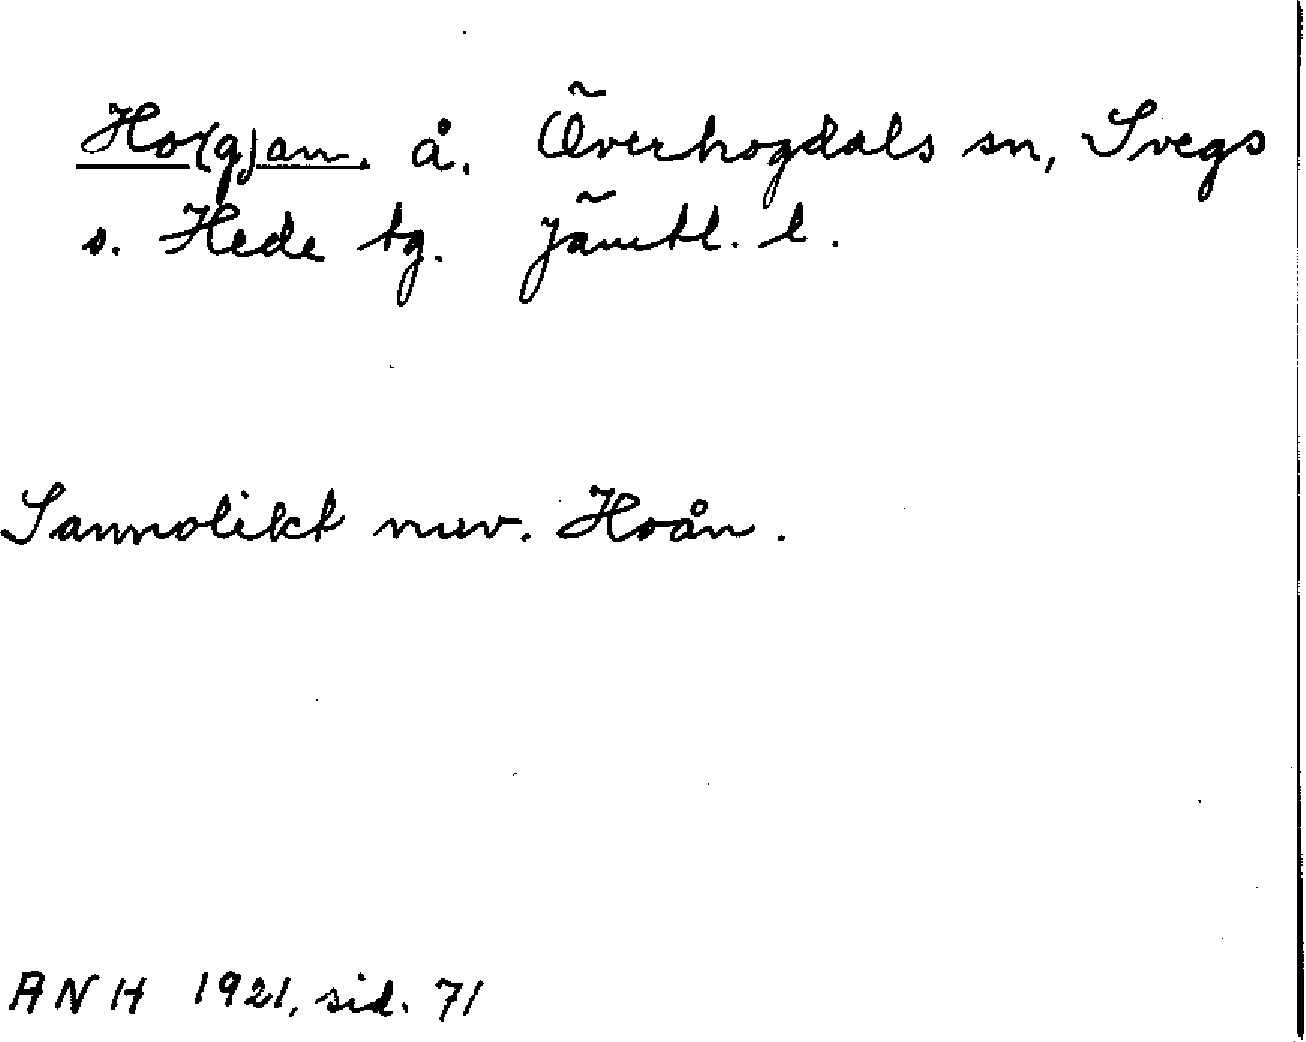 Ho(g)an. å. Överhogdals sn, Svegs
o. Hede tg. Jämtl. l.
Sannolikt nuv. Hoån.
ANH 1921, sid. 71